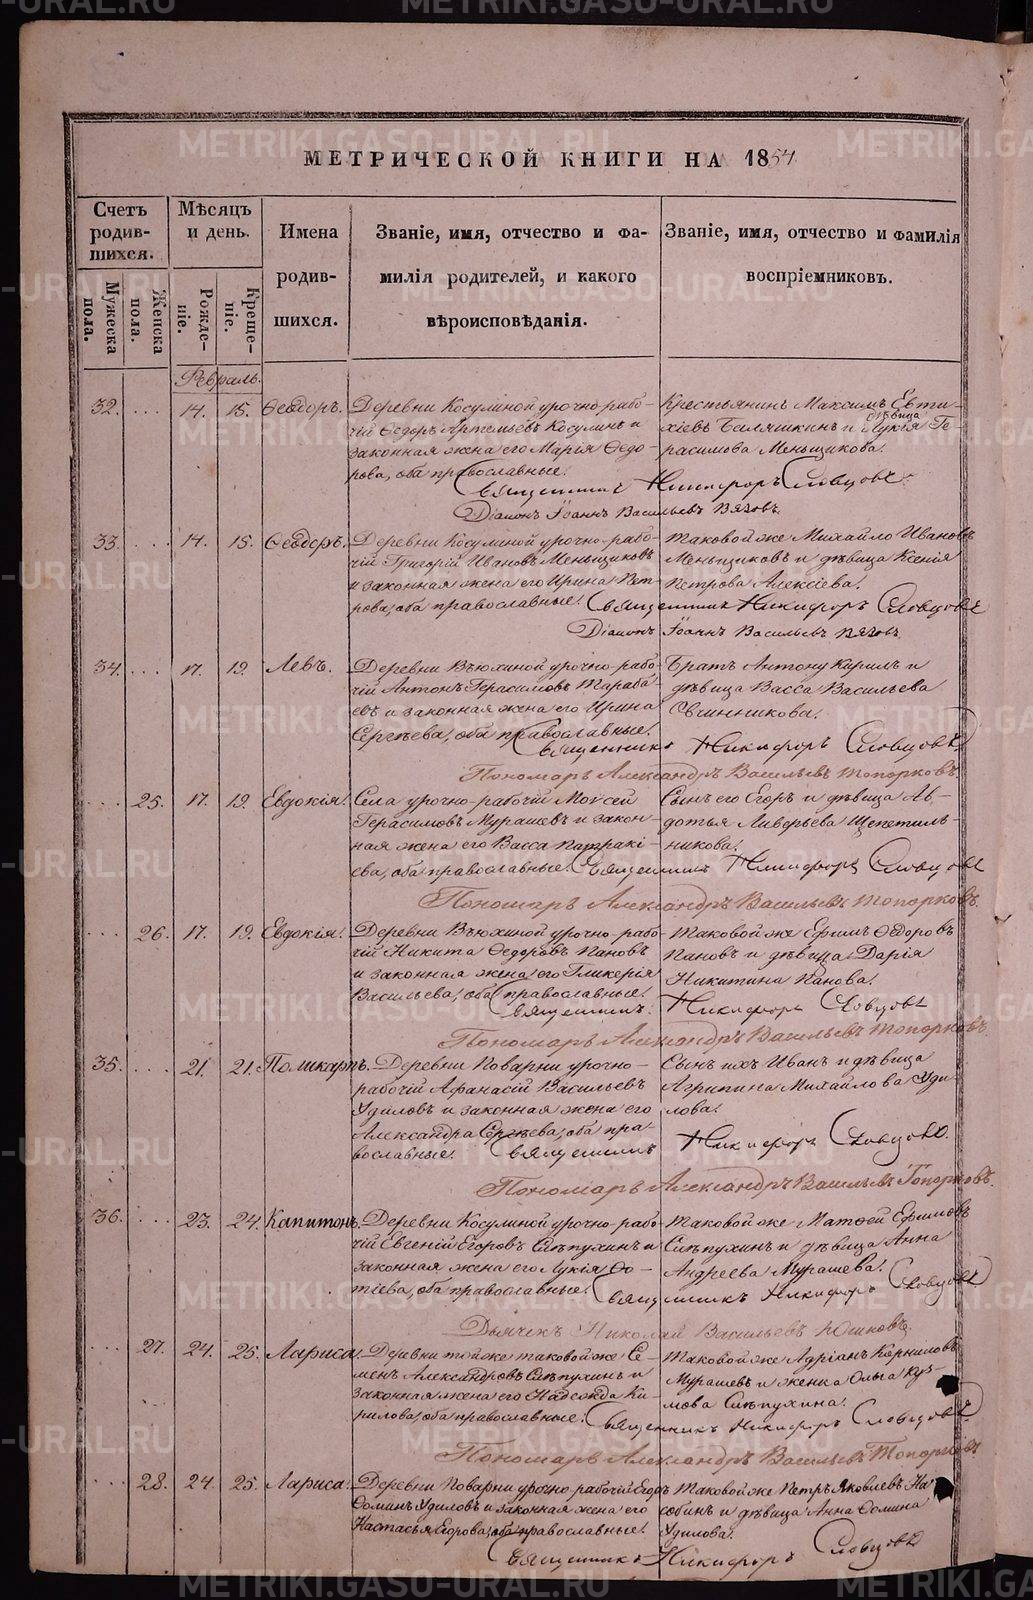 МЕТРИЧЕСКОЙ КНИГИ НА 1854
Счетъ родившихся.
Мѣсяцъ и день.
Имена родившихся.
Званіе, имя, отчество и фамилія родителей, и какого вѣроисповѣданія.
Званіе, имя, отчество и фамилія воспріемниковъ.
Мужеска пола.
Женска пола.
Рожденіе.
Крещеніе.
Февраль.
32. ... 14. 15. Ѳеодоръ.
Деревни Косулиной урочно-рабо-
чій Ѳедоръ Артемьевъ Косулинъ и
законная жена его Марія Ѳедо-
рова, оба православные.
Крестьянинъ Максимъ Евти-
хіевъ Баляшкинъ и дѣвица Лукія Ге-
расимова Меньщикова.
Священникъ Никифоръ Словцовъ.
Діаконъ Іоаннъ Васильевъ Вязовъ.
33. ... 14. 15. Ѳеодоръ.
Деревни Косулиной урочно-рабо-
чій Григорій Ивановъ Меньщиковъ
и законная жена его Ирина Пет-
рова, оба православные.
Таковой же Михайло Ивановъ
Меньщиковъ и дѣвица Ксенія
Петрова Алексіева.
Священникъ Никифоръ Словцовъ
Діаконъ Іоаннъ Васильевъ Вязовъ.
34. ... 17. 19. Левъ.
Деревни Вьюхиной урочно-рабо-
чій Антонъ Герасимовъ Тараба-
евъ и законная жена его Ирина
Сергѣева, оба православные.
Братъ Антону Кирилъ и
дѣвица Васса Васильева
Овчинникова.
Священникъ Никифоръ Словцовъ
Пономарь Александръ Васильевъ Топорковъ.
... 25. 17. 19. Евдокія.
Села урочно-рабочій Моѵсей
Герасимовъ Мурашевъ и закон-
ная жена его Васса Патракі-
ева, оба православные.
Сынъ его Егоръ и дѣвица Ав-
дотья Ливерьева Щепетиль-
никова.
Священникъ Никифоръ Словцовъ
Пономарь Александръ Васильевъ Топорковъ.
... 26. 17. 19. Евдокія.
Деревни Вьюхиной урочно-рабо-
чій Никита Ѳедоровъ Пановъ
и законная жена его Гликерія
Васильева, оба православные.
Таковой же Ефимъ Ѳедоровъ
Пановъ и дѣвица Дарія
Никитина Панова.
Священникъ Никифоръ Словцовъ
Пономарь Александръ Васильевъ Топорковъ.
35. ... 21. 21. Поликарпъ.
Деревни Поварни урочно-
рабочій Афанасій Васильевъ
Удиловъ и законная жена его
Александра Сергѣева, оба пра-
вославные.
Сынъ ихъ Иванъ и дѣвица
Агрипина Михайлова Уди-
лова.
Священникъ Никифоръ Словцовъ.
Пономарь Александръ Васильевъ Топорковъ.
36. ... 23. 24. Капитонъ.
Деревни Косулиной урочно-рабо-
чій Евгеній Егоровъ Слѣпухинъ и
законная жена его Лукія Ѳо-
тіева, оба православные.
Таковой же Матѳей Ефимовъ
Слѣпухинъ и дѣвица Анна
Андреева Мурашева.
Священникъ Никифоръ Словцовъ
Дьячекъ Николай Васильевъ Юшковъ.
... 27. 24. 25. Лариса.
Деревни той же таковой же Се-
менъ Александровъ Слѣпухинъ и
законная жена его Надежда Ки-
рилова, оба православные.
Таковой же Адріанъ Корниловъ
Мурашевъ и женка Ольга Куз-
мова Слѣпухина.
Священникъ Никифоръ Словцовъ
Пономарь Александръ Васильевъ Топорковъ
... 28. 24. 25. Лариса.
Деревни Поварни урочно рабочій Егоръ
Ѳоминъ Удиловъ и законная жена его
Настасья Егорова, оба православные.
Таковой же Петръ Яковлевъ На-
собинъ и дѣвица Анна Ѳомина
Удилова.
Священникъ Никифоръ Словцовъ
METRIKI.GASO-URAL.RU